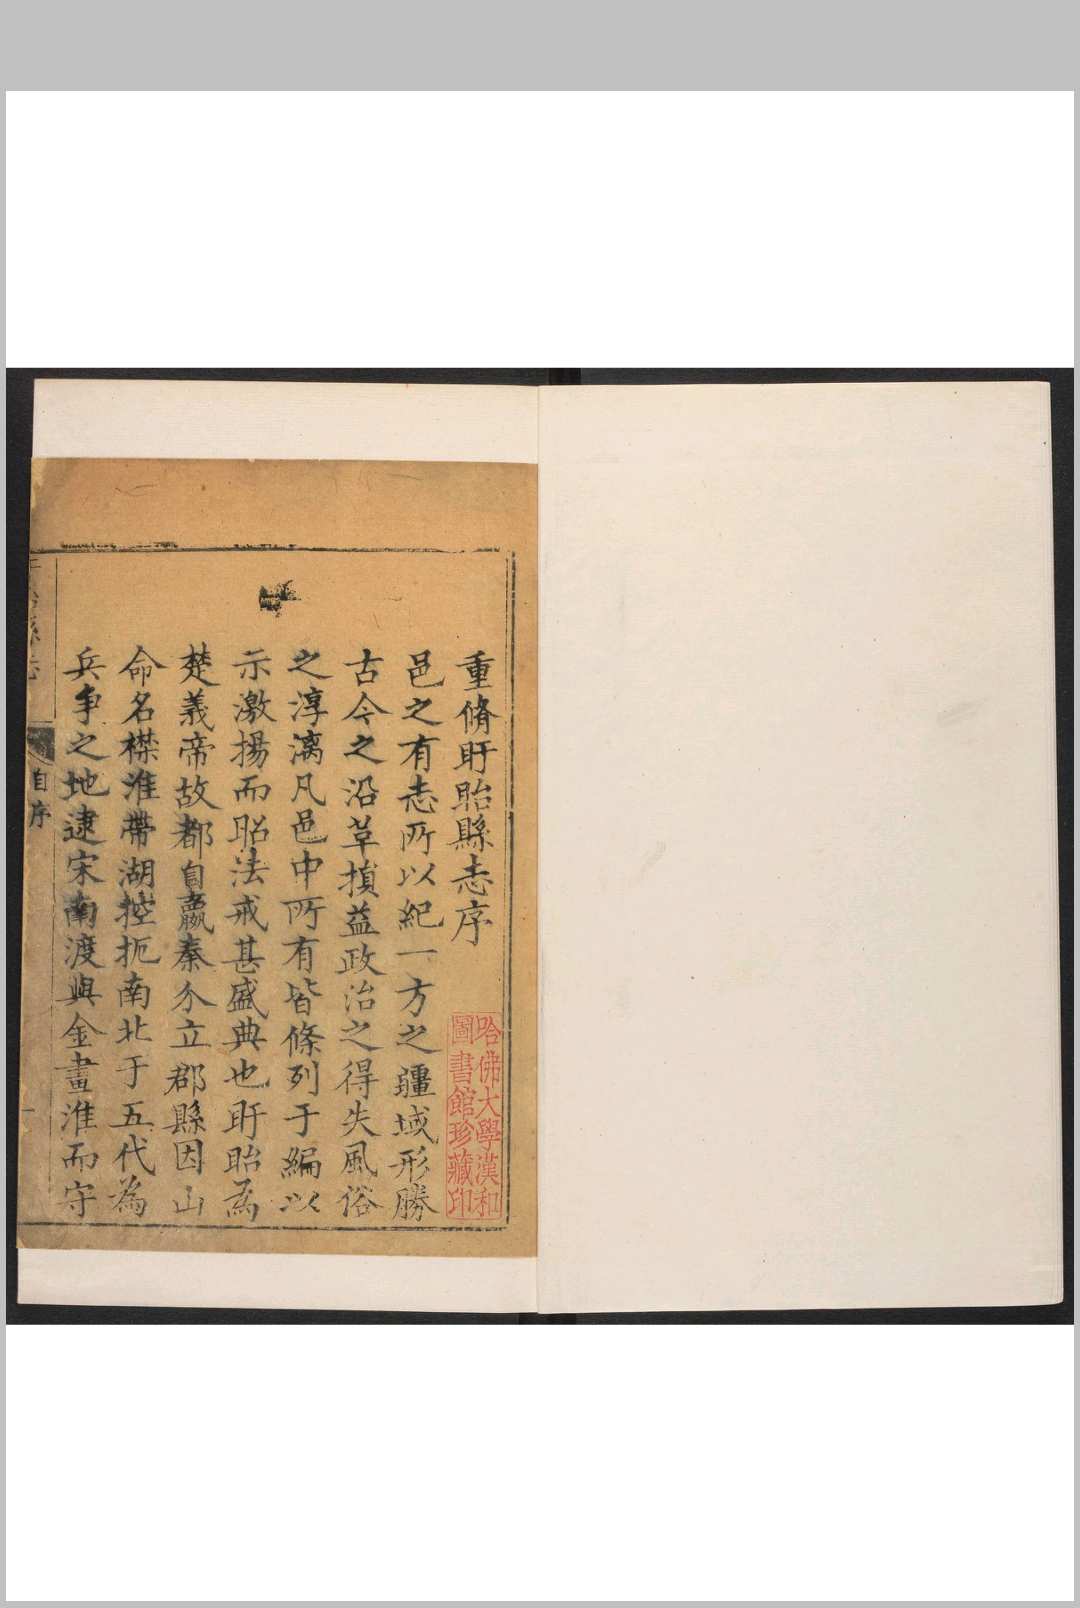 重脩盱眙縣志序
邑之有志所以紀一方之疆域形勝
古今之沿革損益政治之得失風俗
之淳漓凡邑中所有皆條列于編以
示激揚而昭法戒甚盛典也盱眙爲
楚義帝故都自嬴秦分立郡縣因山
命名襟淮帶湖控扼南北于五代為
兵爭之地逮宋南渡與金畫淮而守
自序
一
哈佛大學漢和
圖書館珍藏印